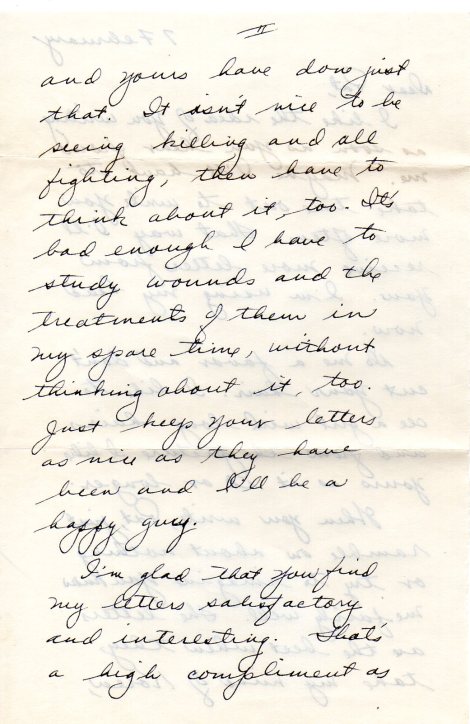 II
and yours have done just
that. It isn't nice to be
seeing killing and all
fighting, then have to
think about it, too. It's
bad enough I have to
study wounds and the
treatments of them in
my spare time, without
thinking about it, too.
Just keep your letters
as nice as they have
been and I'll be a
happy guy.
I'm glad that you find
my letters satisfactory
and interesting. That's
a high compliment as